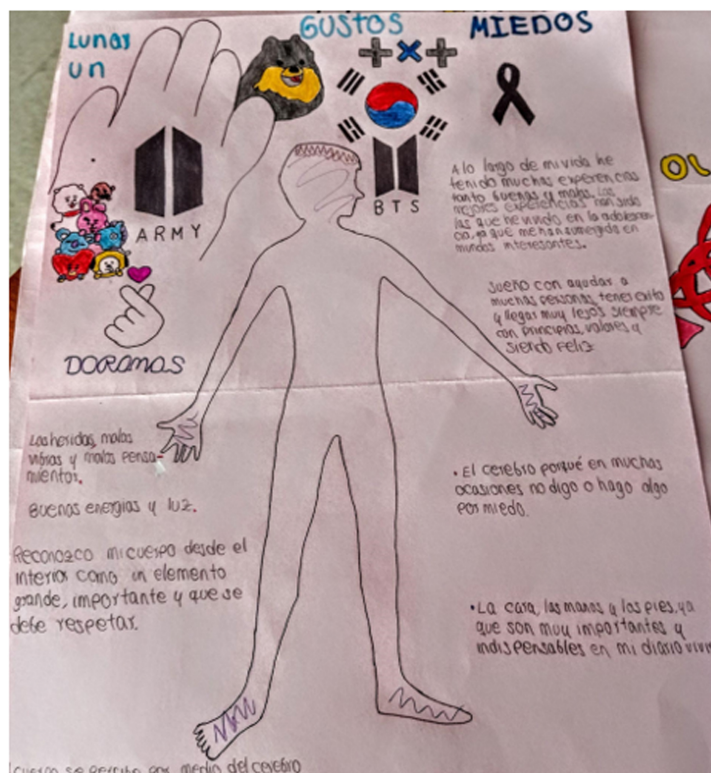 Lunar
un
GUSTOS
MIEDOS
ARMY
BTS
DORAMAS
A lo largo de mi vida he
tenido muchas experiencias
tanto buenas y malas. Las
mejores experiencias han sido
las que he vivido en la adolescen-
cia, ya que me han sumergido en
mundos interesantes.
Sueño con ayudar a
muchas personas, tener exito
y llegar muy lejos siempre
con principios, valores y
siendo feliz
Las heridas, malas
vibras y malos pensa-
mientos.
Buenas energias y luz.
Reconozco mi cuerpo desde el
interior como un elemento
grande, importante y que se
debe respetar.
• El cerebro porqué en muchas
ocasiones no digo o hago algo
por miedo.
• La cara, las manos y los pies, ya
que son muy importantes y
indispensables en mi diario vivir
OL
cuerpo se percibe por medio del cerebro